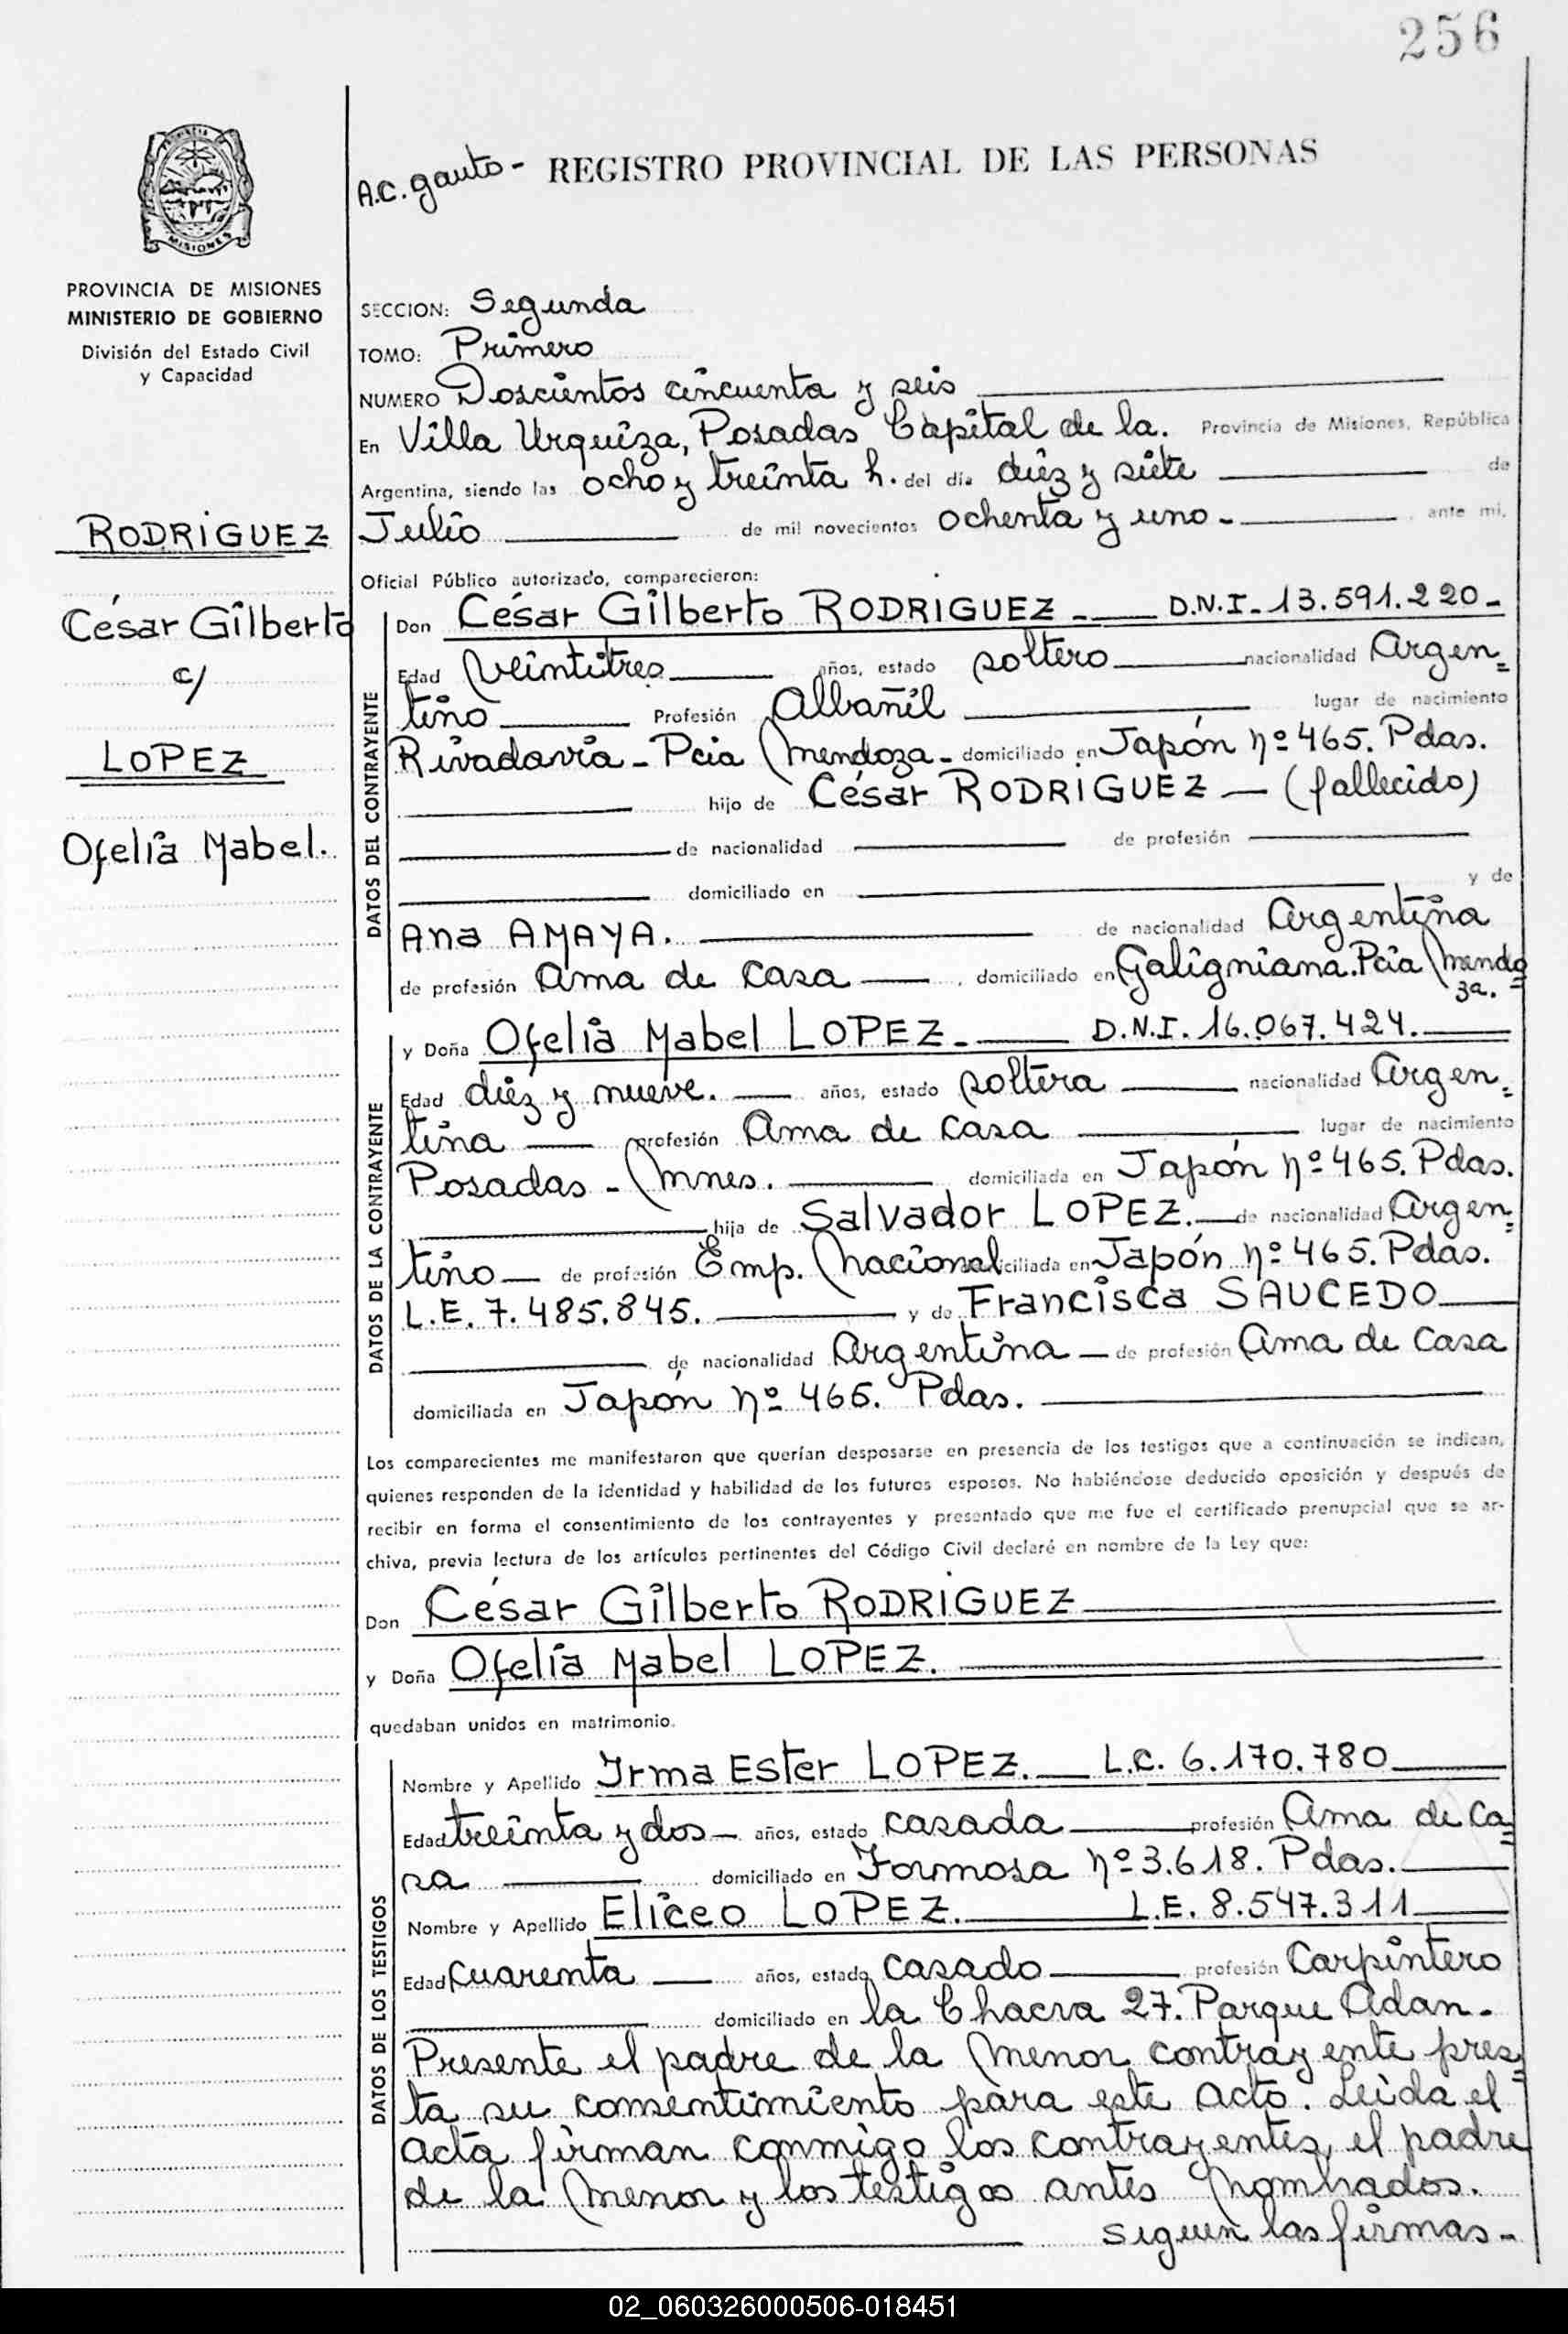 256
A.C. gauto - REGISTRO PROVINCIAL DE LAS PERSONAS
MISIONES
PROVINCIA DE MISIONES
MINISTERIO DE GOBIERNO
División del Estado Civil
y Capacidad
RODRIGUEZ
César Gilberto
c/
LOPEZ
Ofelia Mabel.
SECCION: Segunda
TOMO: Primero
NUMERO Doscientos cincuenta y seis
En Villa Urquiza, Posadas Capital de la. Provincia de Misiones, República
Argentina, siendo las ocho y treinta h. del día diez y siete de
Julio de mil novecientos ochenta y uno - ante mi,
Oficial Público autorizado, comparecieron:
DATOS DEL CONTRAYENTE
Don César Gilberto RODRIGUEZ - D.N.I. 13.591.220-
Edad Veintitres años, estado soltero nacionalidad Argen=
tino Profesión Albañil lugar de nacimiento
Rivadavia - Pcia Mendoza - domiciliado en Japón nº 465. Pdas.
hijo de César RODRIGUEZ - (fallecido)
de nacionalidad de profesión
domiciliado en y de
Ana AMAYA. de nacionalidad Argentina
de profesión Ama de casa domiciliado en Galigniana. Pcia Mendo=
za.
DATOS DE LA CONTRAYENTE
y Doña Ofelia Mabel LOPEZ - D.N.I. 16.067.424.
Edad diez y nueve. años, estado soltera nacionalidad Argen=
tina profesión Ama de casa lugar de nacimiento
Posadas - Mnes. domiciliada en Japón nº 465. Pdas.
hija de Salvador LOPEZ. de nacionalidad Argen=
tino de profesión Emp. Nacional domiciliada en Japón nº 465. Pdas.
L.E. 7.485.845. y de Francisca SAUCEDO
de nacionalidad Argentina de profesión Ama de casa
domiciliada en Japón nº 465. Pdas.
Los comparecientes me manifestaron que querían desposarse en presencia de los testigos que a continuación se indican,
quienes responden de la identidad y habilidad de los futuros esposos. No habiéndose deducido oposición y después de
recibir en forma el consentimiento de los contrayentes y presentado que me fue el certificado prenupcial que se ar-
chiva, previa lectura de los artículos pertinentes del Código Civil declaré en nombre de la Ley que:
Don César Gilberto RODRIGUEZ
y Doña Ofelia Mabel LOPEZ.
quedaban unidos en matrimonio.
DATOS DE LOS TESTIGOS
Nombre y Apellido Irma Ester LOPEZ. L.C. 6.170.780
Edad treinta y dos años, estado casada profesión Ama de ca=
sa domiciliado en Formosa nº 3.618. Pdas.
Nombre y Apellido Eliceo LOPEZ. L.E. 8.547.311
Edad cuarenta años, estado casado profesión Carpintero
domiciliado en la Chacra 27. Parque Adan.
Presente el padre de la menor contrayente pres=
ta su consentimiento para este acto. Leída el
acta firman conmigo los contrayentes, el padre
de la menor y los testigos antes nombrados.
siguen las firmas-
02_060326000506-018451